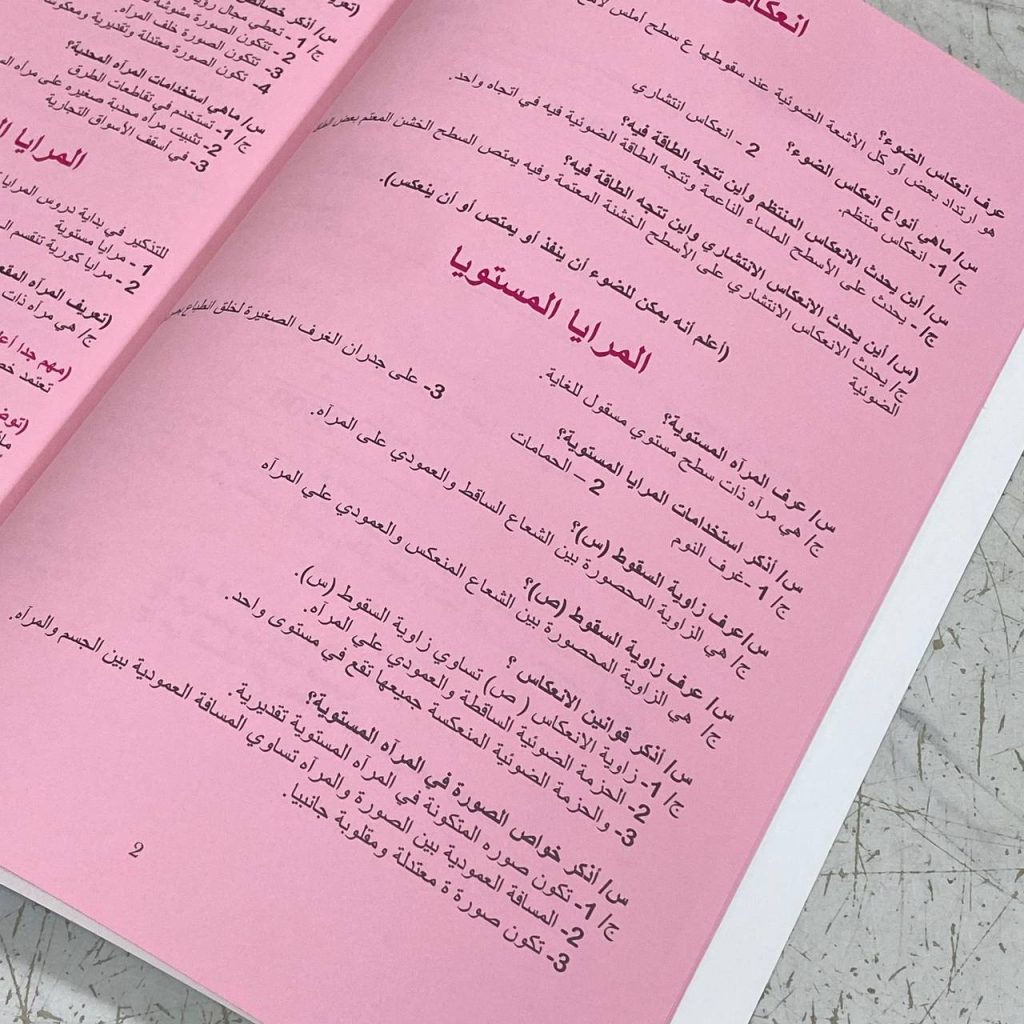 انعكاس
عرف انعكاس الضوء؟
هو ارتداد بعض أو كل الأشعة الضوئية عند سقوطها ع سطح املس
س/ ماهي أنواع انعكاس الضوء؟
ج/ 1- انعكاس منتظم. 2 - انعكاس انتشاري
س/ أين يحدث الانعكاس المنتظم وأين تتجه الطاقة فيه؟
ج/ - يحدث على الأسطح الملساء الناعمة وتتجه الطاقة الضوئية فيه في اتجاه واحد.
(س/ أين يحدث الانعكاس الانتشاري واين تتجه الطاقة فيه؟
ج/ يحدث الانعكاس الانتشاري على الأسطح الخشنة المعتمة وفيه يمتص السطح الخشن المعتم بعض
الضوئية
(أعلم أنه يمكن للضوء أن ينفذ أو يمتص أو أن ينعكس).
المرايا المستويا
س/ عرف المرآه المستوية؟
ج/ هي مرآه ذات سطح مستوي مسقول للغاية.
س/ أذكر استخدامات المرايا المستوية؟
ج/ 1 -غرف النوم 2 – الحمامات 3- على جدران الغرف الصغيرة لخلق انطباع
س/عرف زاوية السقوط (س)؟
ج/ هي الزاوية المحصورة بين الشعاع الساقط والعمودي على المرآه.
س/ عرف زاوية السقوط (ص)؟
ج/ هي الزاوية المحصورة بين الشعاع المنعكس والعمودي علي المرآه
س/ أذكر قوانين الانعكاس ؟
ج/ 1- زاوية الانعكاس ( ص) تساوي زاوية السقوط (س).
2- الحزمة الضوئية الساقطة والعمودي علي المرآه.
3- والحزمة الضوئية المنعكسة جميعها تقع في مستوى واحد.
س/ أذكر خواص الصورة في المرآه المستوية؟
ج/ 1- تكون صوره المتكونة في المرآه المستوية تقديرية.
2- المسافة العمودية بين الصورة والمرآه تساوي المسافة العمودية بين الجسم والمرآه.
3- تكون صورة ة معتدلة ومقلوبة جانبيا.
2
س/ أذكر
ج/ 1- تعطي مجال
2- تتكون الصورة خلف المرآه.
3- تتكون الصورة
4- تكون الصورة معتدلة وتقديرية
س/ ماهي استخدامات المرآه المحدبة؟
ج/ 1- تستخدم في تقاطعات الطرق
2- تثبيت مرآه محدبة صغيره على مرآه
3- في أسقف الأسواق التجارية
المرايا
للتذكير في بداية دروس المرايا
1 - مرايا مستوية
2 - مرايا كورية تنقسم
(تعريف المرآه
ج/ هي مرآه ذات
(مهم جدا
تعتمد